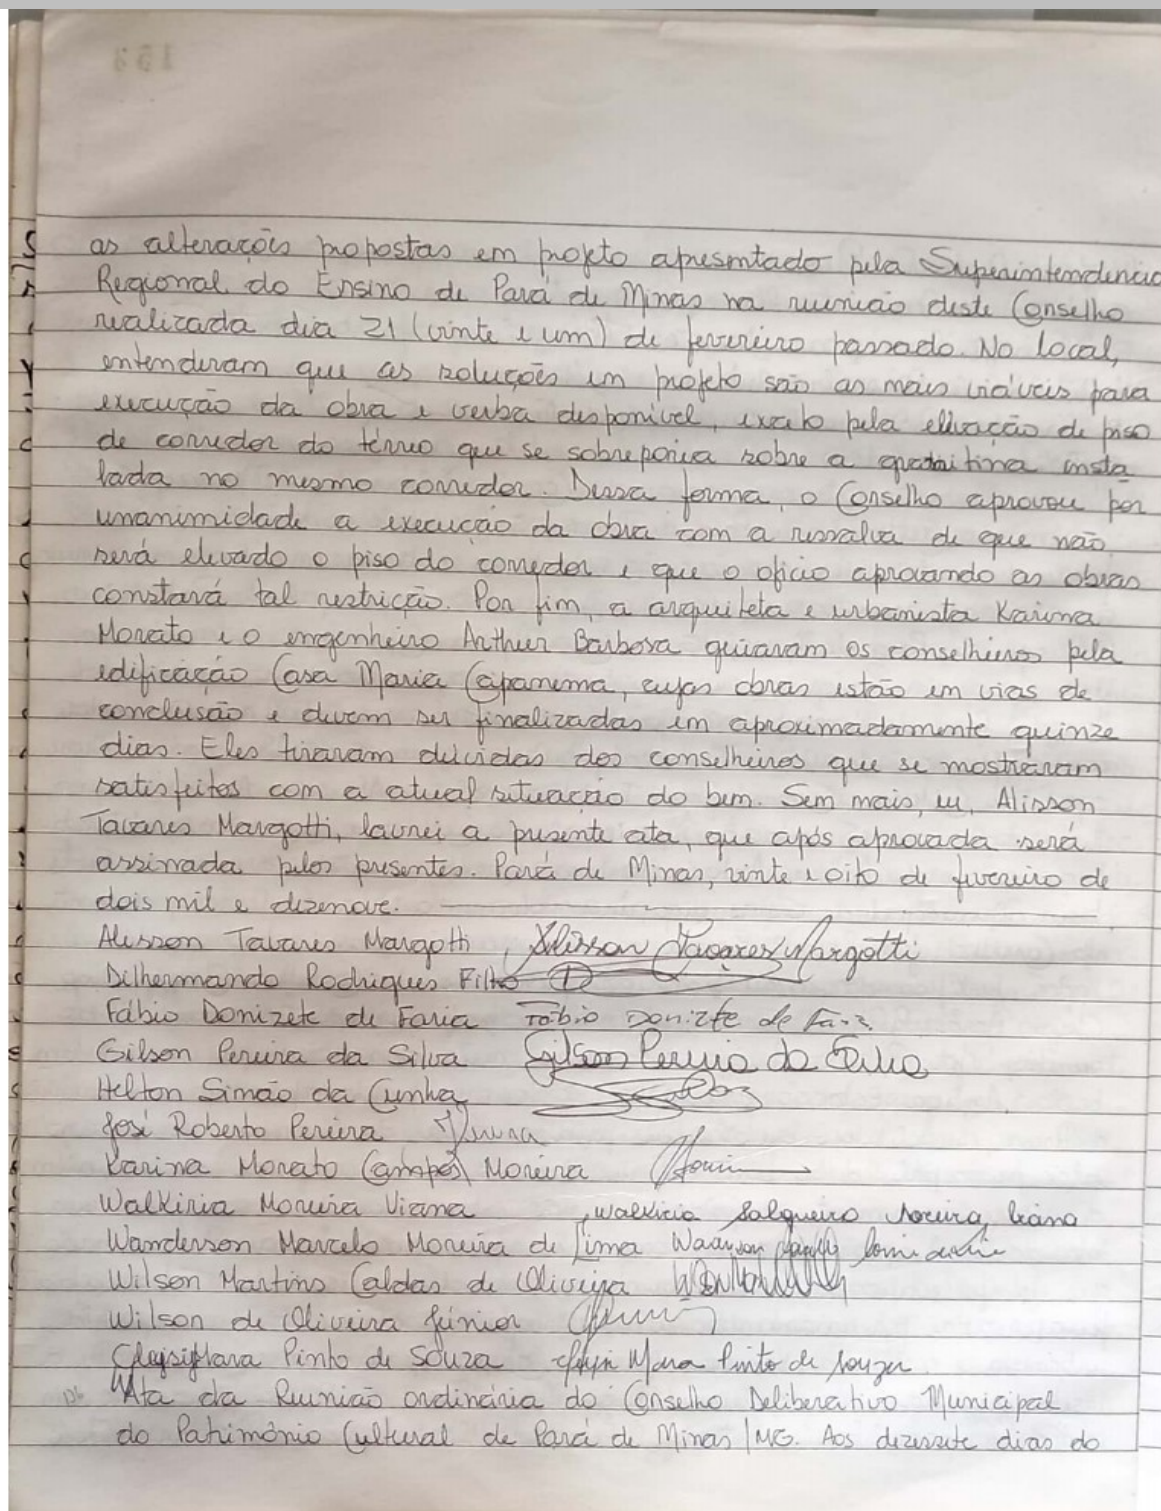 as alterações propostas em projeto apresentado pela Superintendencia
Regional do Ensino de Pará de Minas na reunião deste Conselho
realizada dia 21 (vinte e um) de fevereiro passado. No local,
entenderam que as soluções em projeto são as mais viáveis para
execução da obra e verba disponível, exceto pela elevação de piso
de corredor do térreo que se sobreporia sobre a granitina insta
lada no mesmo corredor. Dessa forma, o Conselho aprovou por
unanimidade a execução da obra com a ressalva de que não
será elevado o piso do corredor e que o ofício aprovando as obras
constará tal restrição. Por fim, a arquiteta e urbanista Karina
Morato e o engenheiro Arthur Barbosa guiaram os conselheiros pela
edificação Casa Maria Capanema, cujas obras estão em vias de
conclusão e devem ser finalizadas em aproximadamente quinze
dias. Eles tiraram dúvidas dos conselheiros que se mostraram
satisfeitos com a atual situação do bem. Sem mais, eu, Alisson
Tavares Margotti, lavrei a presente ata, que após aprovada será
assinada pelos presentes. Pará de Minas, vinte e oito de fevereiro de
dois mil e dezenove.
Alisson Tavares Margotti, Alisson Tavares Margotti
Dilhermando Rodrigues Filho
Fábio Donizete de Faria Fábio Donizete de Faria
Gilson Pereira da Silva Gilson Pereira da Silva
Helton Simão da Cunha
José Roberto Pereira
Karina Morato Campos Moreira
Walkiria Moreira Viana Walkiria Salgueiro Moreira Viana
Wanderson Marcelo Moreira de Lima
Wilson Martins Caldas de Oliveira
Wilson de Oliveira Júnior
Cleysi Mara Pinto de Souza Cleysi Mara Pinto de Souza
Ata da Reunião ordinária do Conselho Deliberativo Municipal
do Patrimônio Cultural de Pará de Minas/MG. Aos dezessete dias do